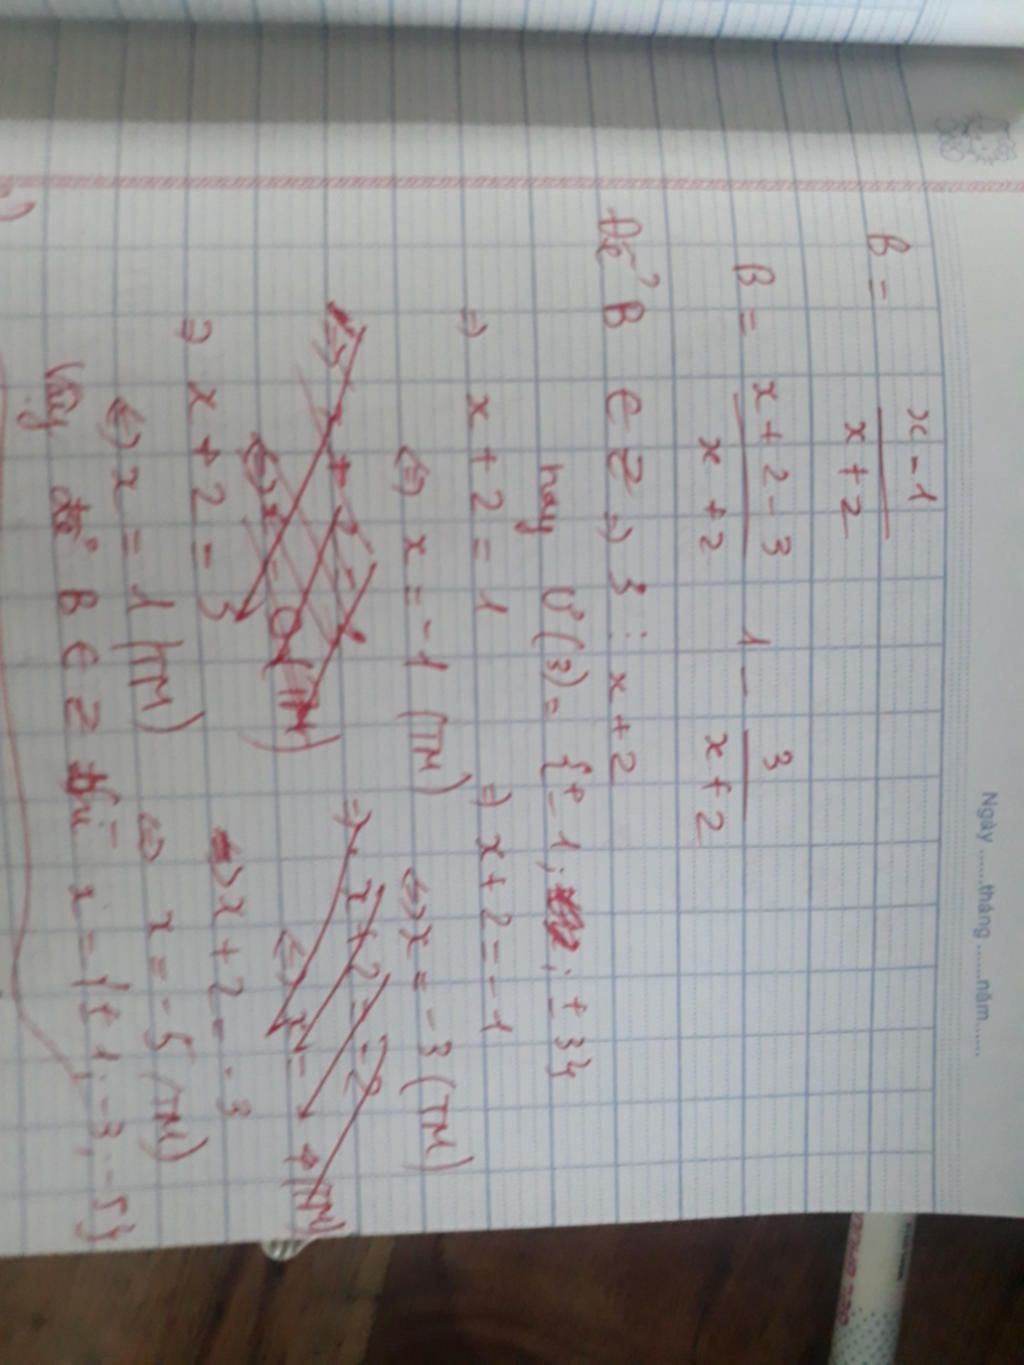 Ngày ......tháng ......năm......
B = \frac{x-1}{x+2}
B = \frac{x+2-3}{x+2} 1 - \frac{3}{x+2}
Để B ∈ Z => 3 ⋮ x+2
hay Ư(3) = {± 1; ; ± 3}
=> x + 2 = 1 => x + 2 = -1
<=> x = -1 (TM) <=> x = -3 (TM)
=> x + 2 = -2
=> x + 2 = 3 <=> x + 2 = -3
<=> x = 1 (TM) <=> x = -5 (TM)
Vậy để B ∈ Z thì x = {± 1; -3; -5}